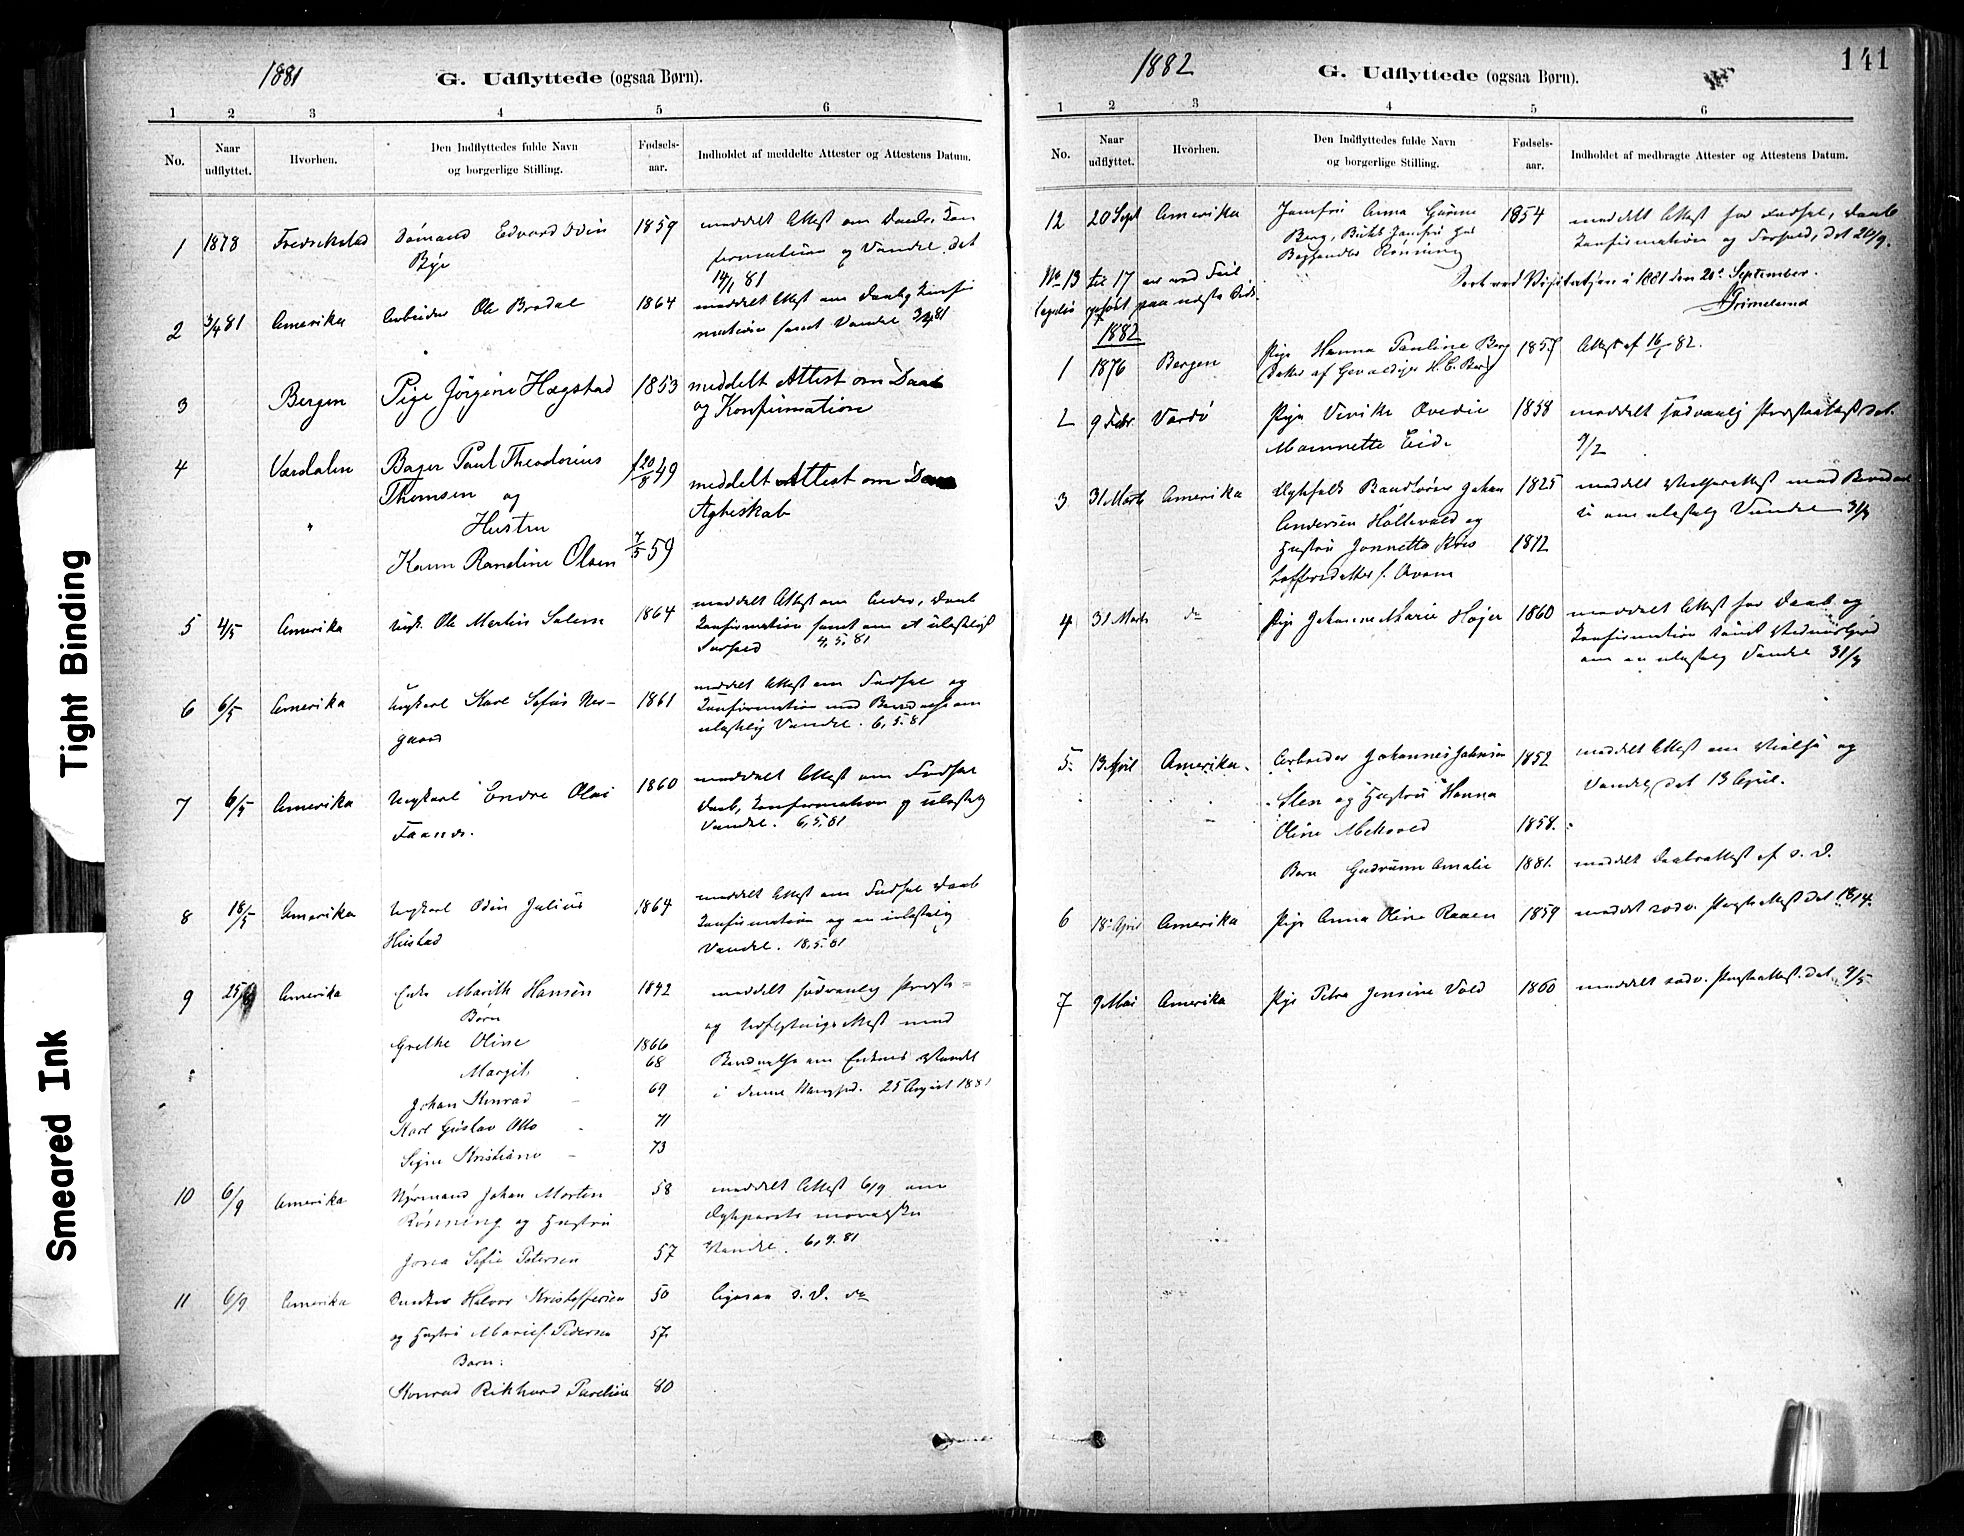 1881
G. Udflyttede (ogsaa Børn).
1 2 3 4 5 6
No. Naar udflyttet. Hvorhen. Den Indflyttedes fulde Navn og borgerlige Stilling. Fødsels-aar. Indholdet af meddelte Attester og Attestens Datum.
1 1878 Fredrikstad Sømand Edvard Odin 1859 meddelt Attest om Daab, Kon
Bye firmation og Vandel. Det
14/1 81
2 3/4 81 Amerika Arbeider Ole Brodal 1864 meddelt Attest om Daab og Konfir
mation samt Vandel 3/4 81
3 Bergen Pige Jørgine Hægstad 1853 meddelt Attest om Daab
og Konfirmation
4 Værdalen Bager Paul Theodorius f 20/8 49 meddelt Attest om Daab
Thomsen og Ægteskab
" Hustru
Karen Randine Olsen 7/5 59
5 4/5 Amerika Ungk. Ole Martin Salem 1864 meddelt Attest om Alder, Daab
Konfirmation samt om et ulasteligt
Forhold 4, 5, 81
6 6/5 Amerika Ungkarl Karl Sefus Nes- 1861 meddelt Attest om Fødsel og
gaard Konfirmation med Bevidnelse om
ulastelig Vandel. 6, 5. 81
7 6/5 Amerika Ungkarl Endre Olai 1860 meddelt Attest om Fødsel
Faanes. Daab, Konfirmation og ulastelig
Vandel. 6, 5, 81
8 18/5 Amerika Ungkarl Odin Julius 1864 meddelt Attest om Fødsel Daab
Hustad Konfirmation og en ulastelig
Vandel. 18, 5. 81
9 25/8 Amerika Enke Marith Hansen 1842 meddelt sædvanlig Præste-
Børn og Udflytningsattest med
Grethe Oline 1866
Margit 68 Bevidnelse om Enkens Vandel
Johan Konrad 69 i denne Menighed. 25 August 1881
Karl Gustav Otto 71
Signe Kristiane 73
10 6/9 Amerika Nyrmand Johan Morten 58 meddelt Attest 6/9 om
Rønning og Hustru Egteparrets moralske
Josea Sofie Petersen 57 Vandel. 6, 9. 81
11 6/9 Amerika Snedker Halvor Kristoffersen 50 ligesaa s. D. do
og Hustru Marie f. Pedersen 57.
Børn:
Konrad Rikhard Pareliue 80
1882
G. Udflyttede (ogsaa Børn).
141
1 2 3 4 5 6
No. Naar udflyttet. Hvorhen. Den Indflyttedes fulde Navn og borgerlige Stilling. Fødsels-aar. Indholdet af medbragte Attester og Attestens Datum.
12 20 Sept Amerika Jomfru Anna Gurine 1854 meddelt Attest for Fødsel, Daab
Berg, Butik Jomfru hos Konfirmation og Forhold, det 20/9.
Boghandler Rønning
No 13 til 17 er ved Feil Sert ved Visitatsen i 1881 den 20de September.
paa næste Side. Grimelund
1882
1 1876 Bergen Pige Hanna Pauline Berg Attest af 16/1 82.
Datter af Gevaldiger H. C. Berg
2 9 Febr. Vardø Pige Vivike Ovedie 1858 meddelt sædvanlig Præsteattest dat.
Mannette Eide 9/2
3 31 Marts Amerika Egtefolk Baadfører Johan 1825 meddelt Vielsesattest med Bevidnel
Andersen Holtevald og se om ulastelig Vandel 31/3
Hustru Jonnetta Kris 1812
toffersdatter f. Ovam
4 31 Marts do Pige Johanne Marie Højer 1860 meddelt Attest for Daab og
Konfirmation samt Vidnesbyrd
om en ulastelig Vandel 31/3
5. 13 April Amerika. Arbeider Johannes Johnsen 1852 meddelt Attest om Vielse og
Sten og Hustru Hanna Vandel, det 13 April.
Oline Melvold 1858.
Barn Gudrunn Amalie 1881. meddelt Daabsattest af s. D.
6 18 April Amerika Pige Anna Oline Raaen 1859 meddelt sædv. Præsteattest dat 18/4.
7 9 Mai Amerika Pige Petra Jensine Vold 1860 meddelt sædv. Præsteattest. dat 9/5
Tight Binding
Smeared Ink